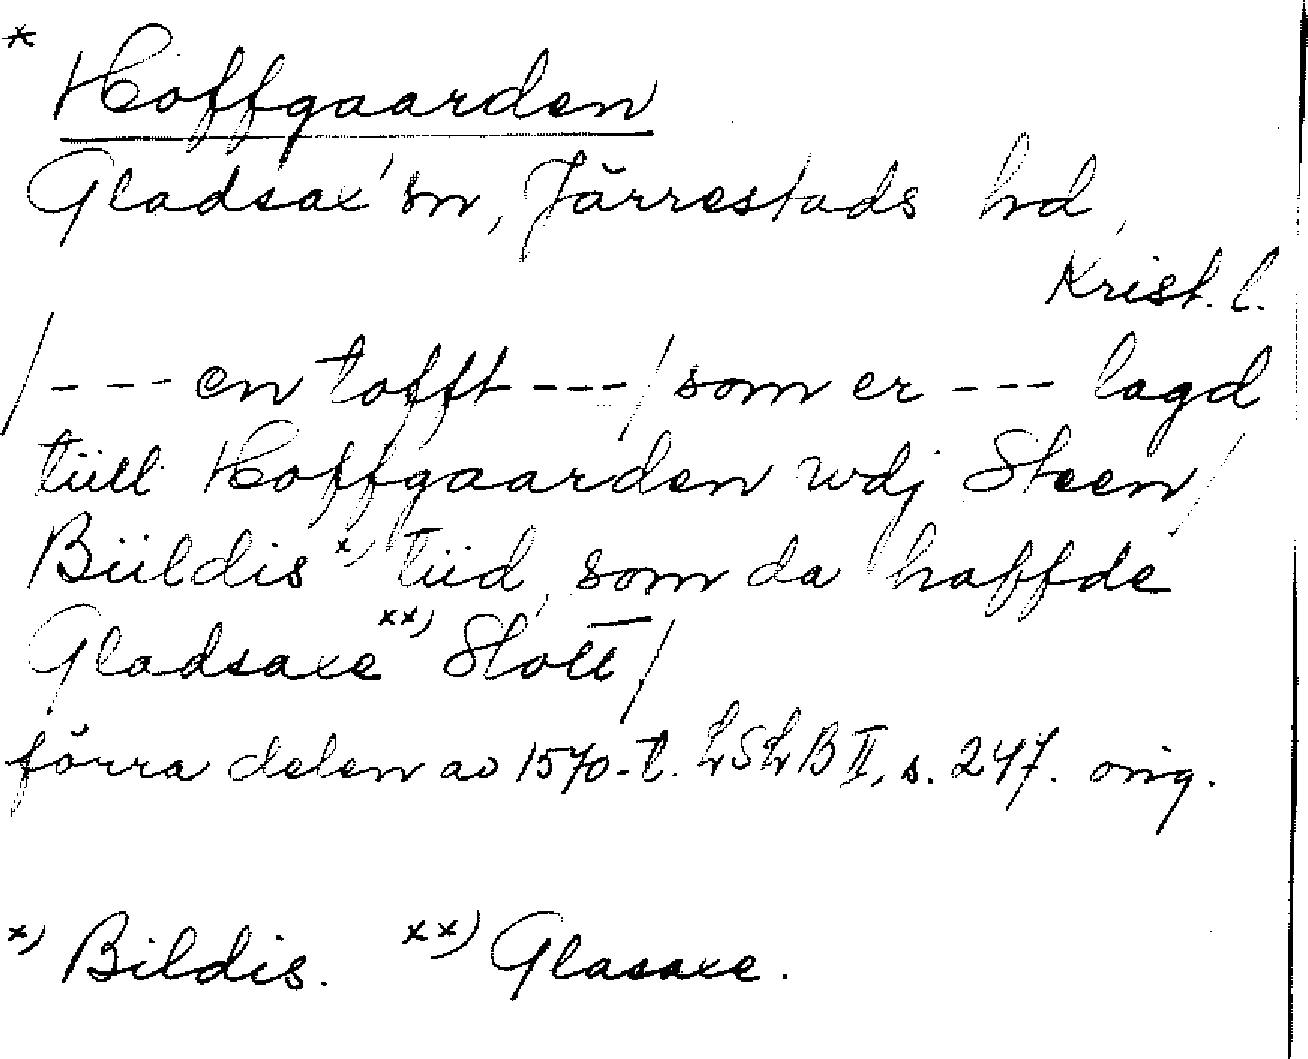 * Hoffgaarden
Gladsax' sn, Järrestads hd,
Krist. l.
/--- en tofft ---/ som er --- lagd
tiill Hoffgaarden wdj Steen/
Biildis x) tiid, som da haffde
Gladsaxe xx) Slott/
förra delen av 1570-t. LSLB II, s. 247. orig.
x) Bildis. xx) Glasaxe.